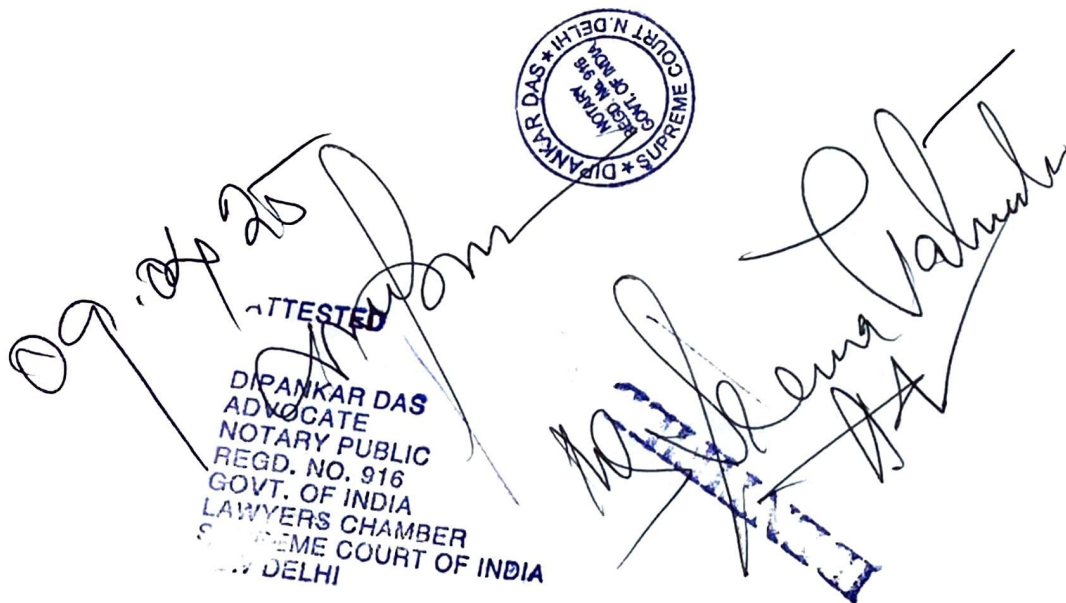 ★ DIPANKAR DAS ★ SUPREME COURT N. DELHI
NOTARY
REGD. No. 916
GOVT. OF INDIA
09.04.25
ATTESTED
DIPANKAR DAS
ADVOCATE
NOTARY PUBLIC
REGD. NO. 916
GOVT. OF INDIA
LAWYERS CHAMBER
SUPREME COURT OF INDIA
DELHI